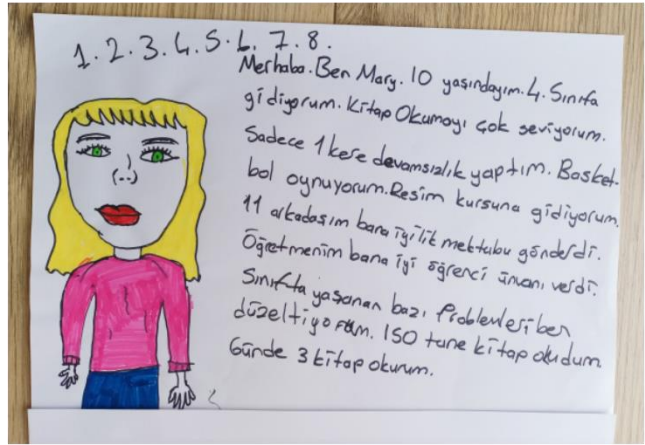 1.2.3.4.5.6.7.8.
Merhaba. Ben Mary. 10 yaşındayım. 4. Sınıfa
gidiyorum. Kitap Okumayı çok seviyorum.
Sadece 1 kere devamsızlık yaptım. Basket-
bol oynuyorum. Resim kursuna gidiyorum.
11 arkadaşım bana iyilik mektubu gönderdi.
Öğretmenim bana iyi öğrenci ünvanı verdi.
Sınıfta yaşanan bazı Problemleri ben
düzeltiyorum. 150 tane kitap okudum.
Günde 3 kitap okurum.